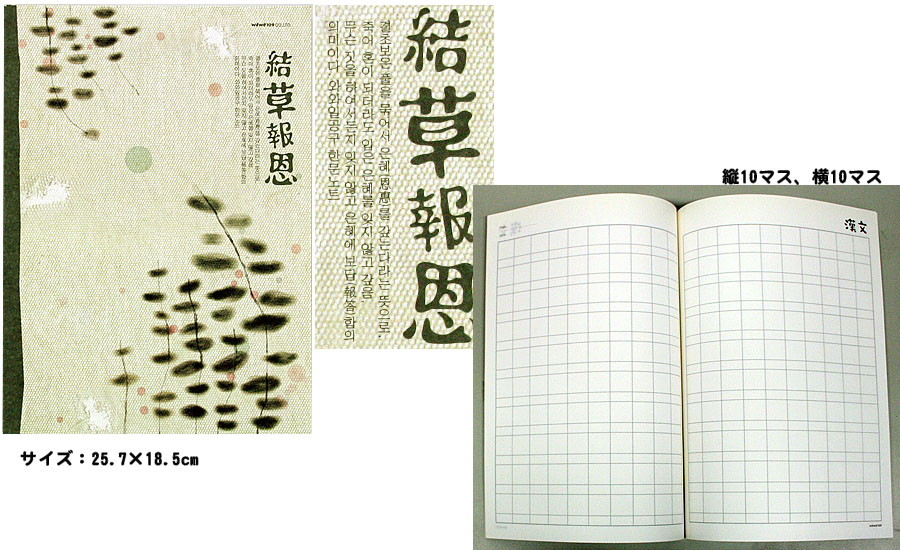 結草報恩
結草報恩
결초보은 풀을 묶어서 은혜(恩惠)를 갚는다라는 뜻으로,
죽어 혼이 되더라도 입은 은혜를 잊지 않고 갚음
무슨 짓을 하여서든지 잊지 않고 은혜에 보답(報答)함의
의미이다 와와일공구 한문노트
縦10マス、横10マス
漢文
サイズ：25.7×18.5cm